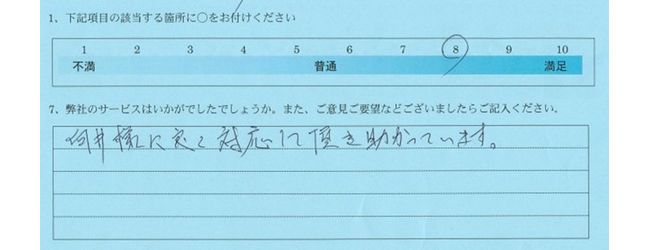 1、下記項目の該当する箇所に○をお付けください
1 2 3 4 5 6 7 8 9 10
不満 普通 満足
7、弊社のサービスはいかがでしたでしょうか。また、ご意見ご要望などございましたらご記入ください。
向井様に良く対応して頂き助かっています。